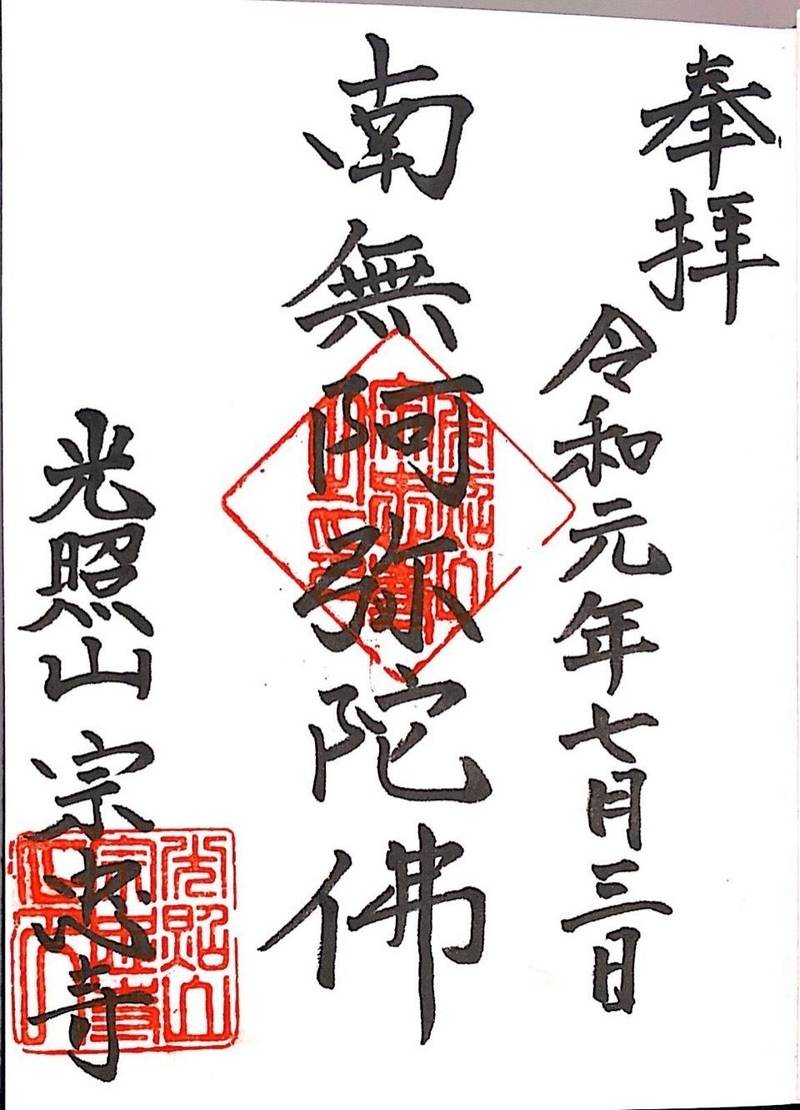 奉拝
令和元年七月三日
南無阿弥陀佛
光照山 宗忠寺